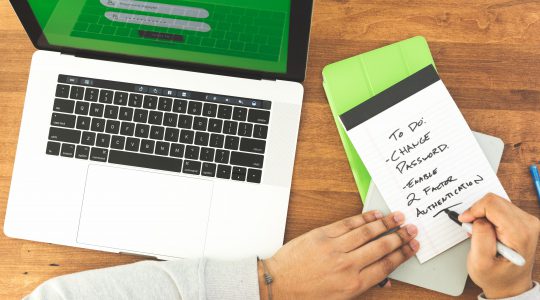 TO DO:
-CHANGE
PASSWORD.
-ENABLE
2 FACTOR
AUTHENTICATION